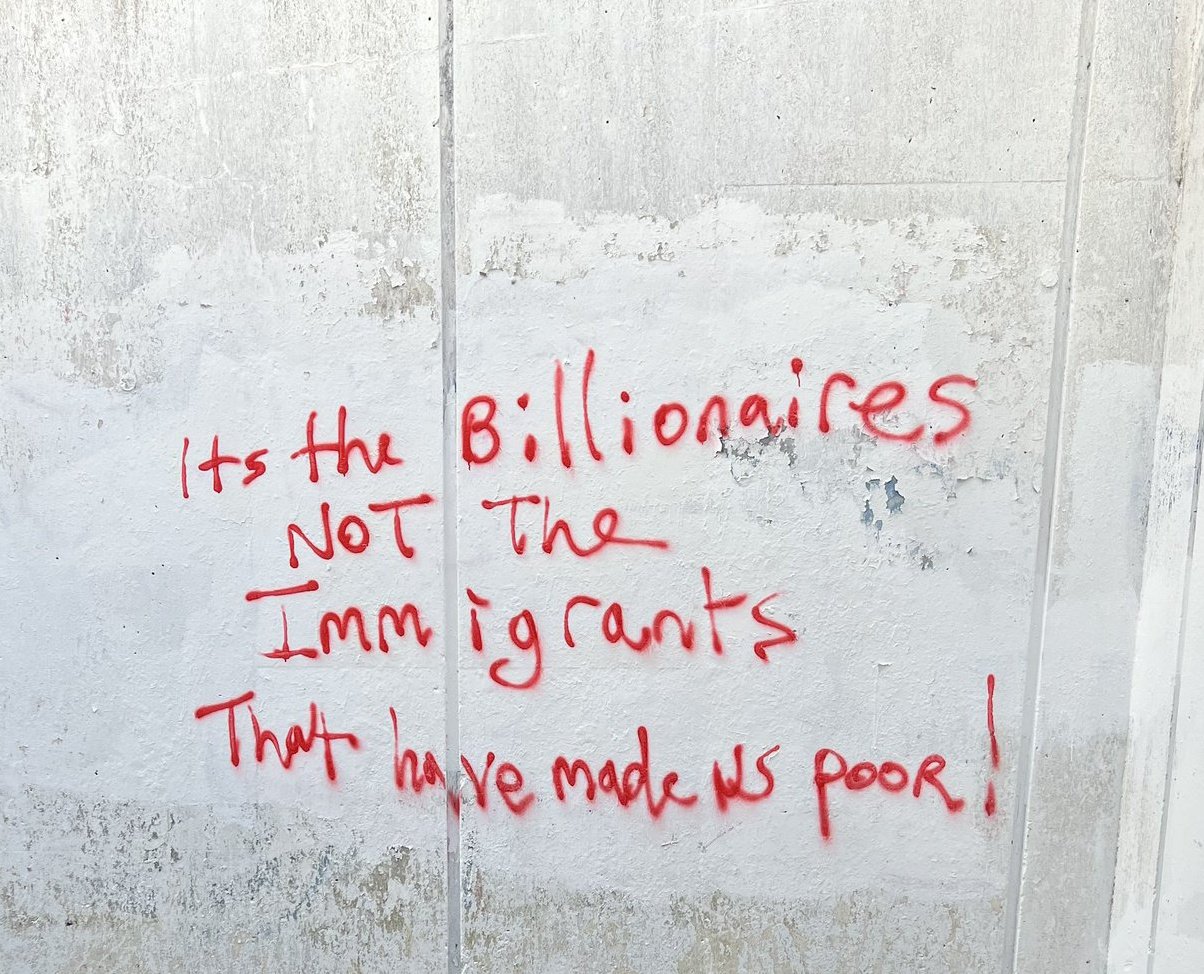 Its the Billionaires
NOT The
Immigrants
That have made us pooR!